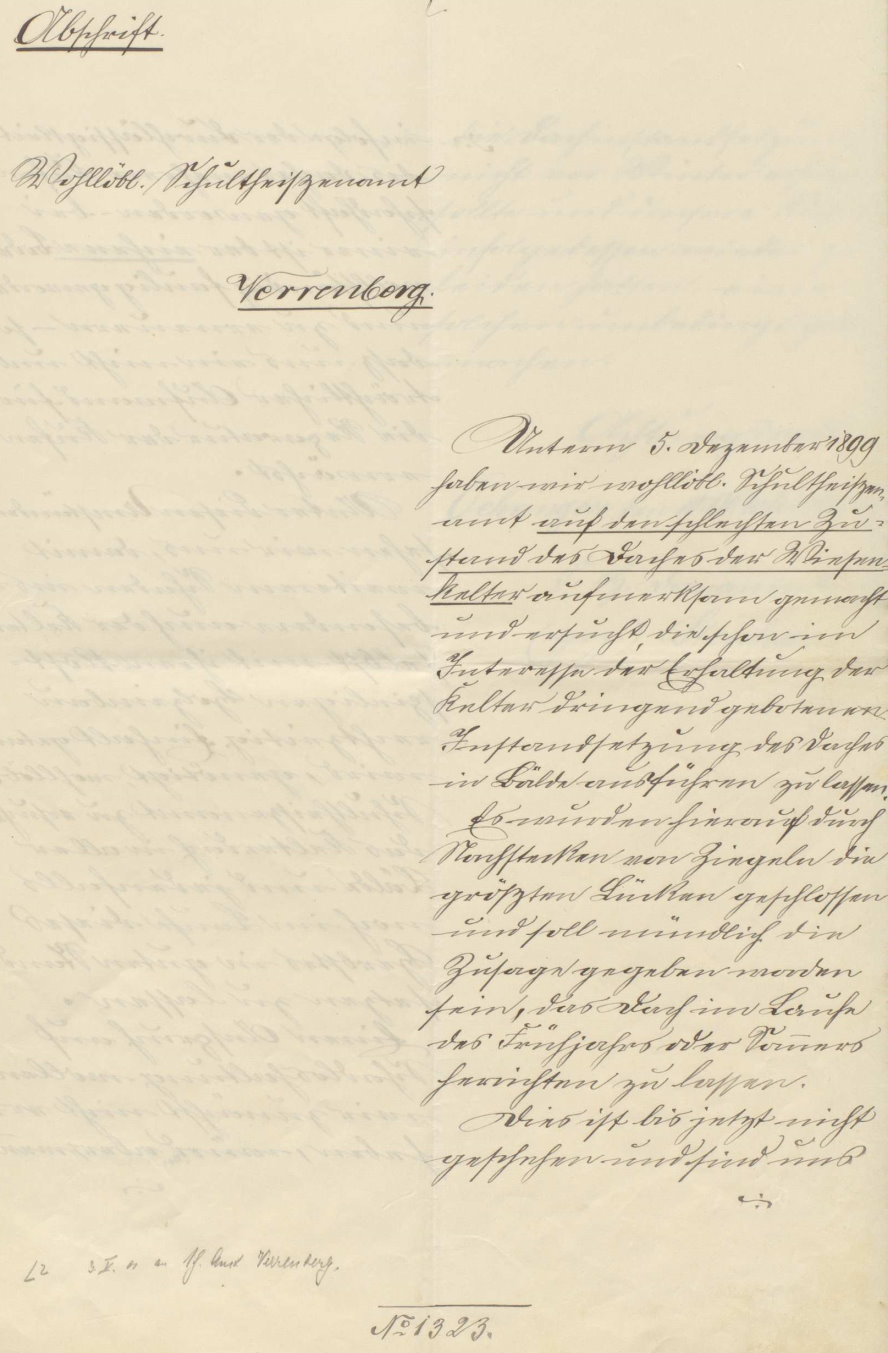 Abschrift.
Wohllöbl. Schultheißenamt
Verrenberg.
Unterm 5. Dezember 1899
haben wir wohllöbl. Schultheißen-
amt auf den schlechten Zu-
stand des Daches der Wiesen-
kelter aufmerksam gemacht
und ersucht, die schon im
Interesse der Erhaltung der
Kelter dringend gebotenen
Instandsetzung des Daches
in Bälde ausführen zu lassen.
Es wurden hierauf durch
Nachstecken von Ziegeln die
größten Lücken geschlossen
und soll mündlich die
Zusage gegeben worden
sein, das Dach im Laufe
des Frühjahrs oder Som̄ers
herrichten zu lassen.
Dies ist bis jetzt nicht
geschehen und sind uns
Verrenberg.
No 1323.